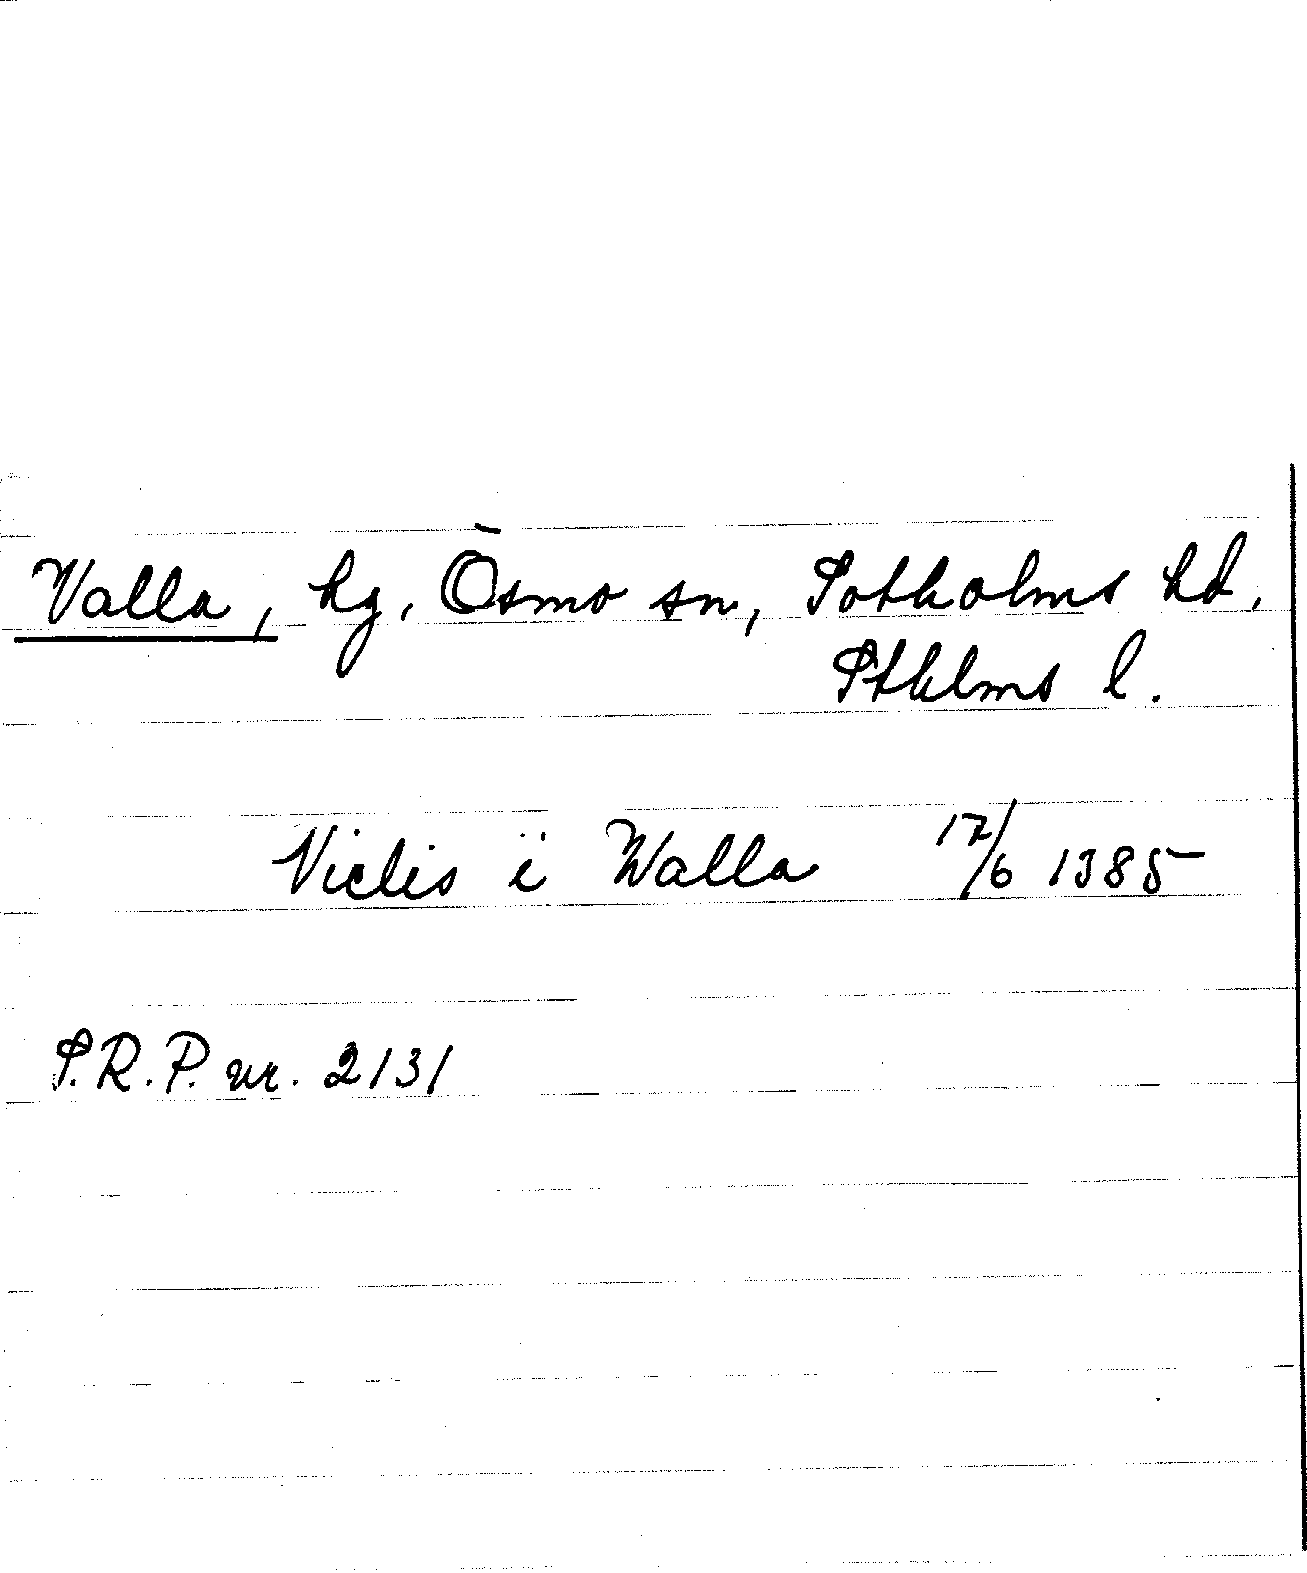 Valla, hg, Ösmo sn, Sotholms hd,
Sthlms l.
Niclis i Walla 17/6 1385
S.R.P. nr. 2131